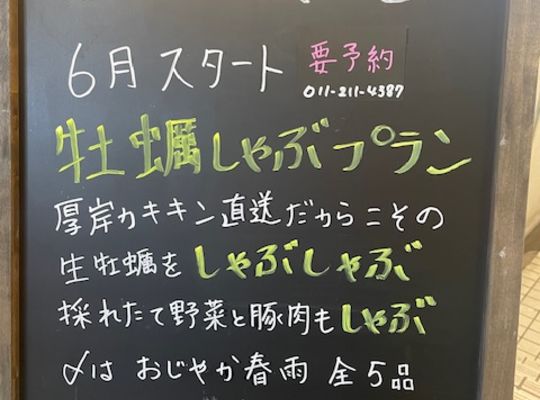 6月スタート 要予約
011-211-4387
牡蠣しゃぶプラン
厚岸カキキン直送だからこその
生牡蠣をしゃぶしゃぶ
採れたて野菜と豚肉もしゃぶ
〆は おじやか春雨 全5品